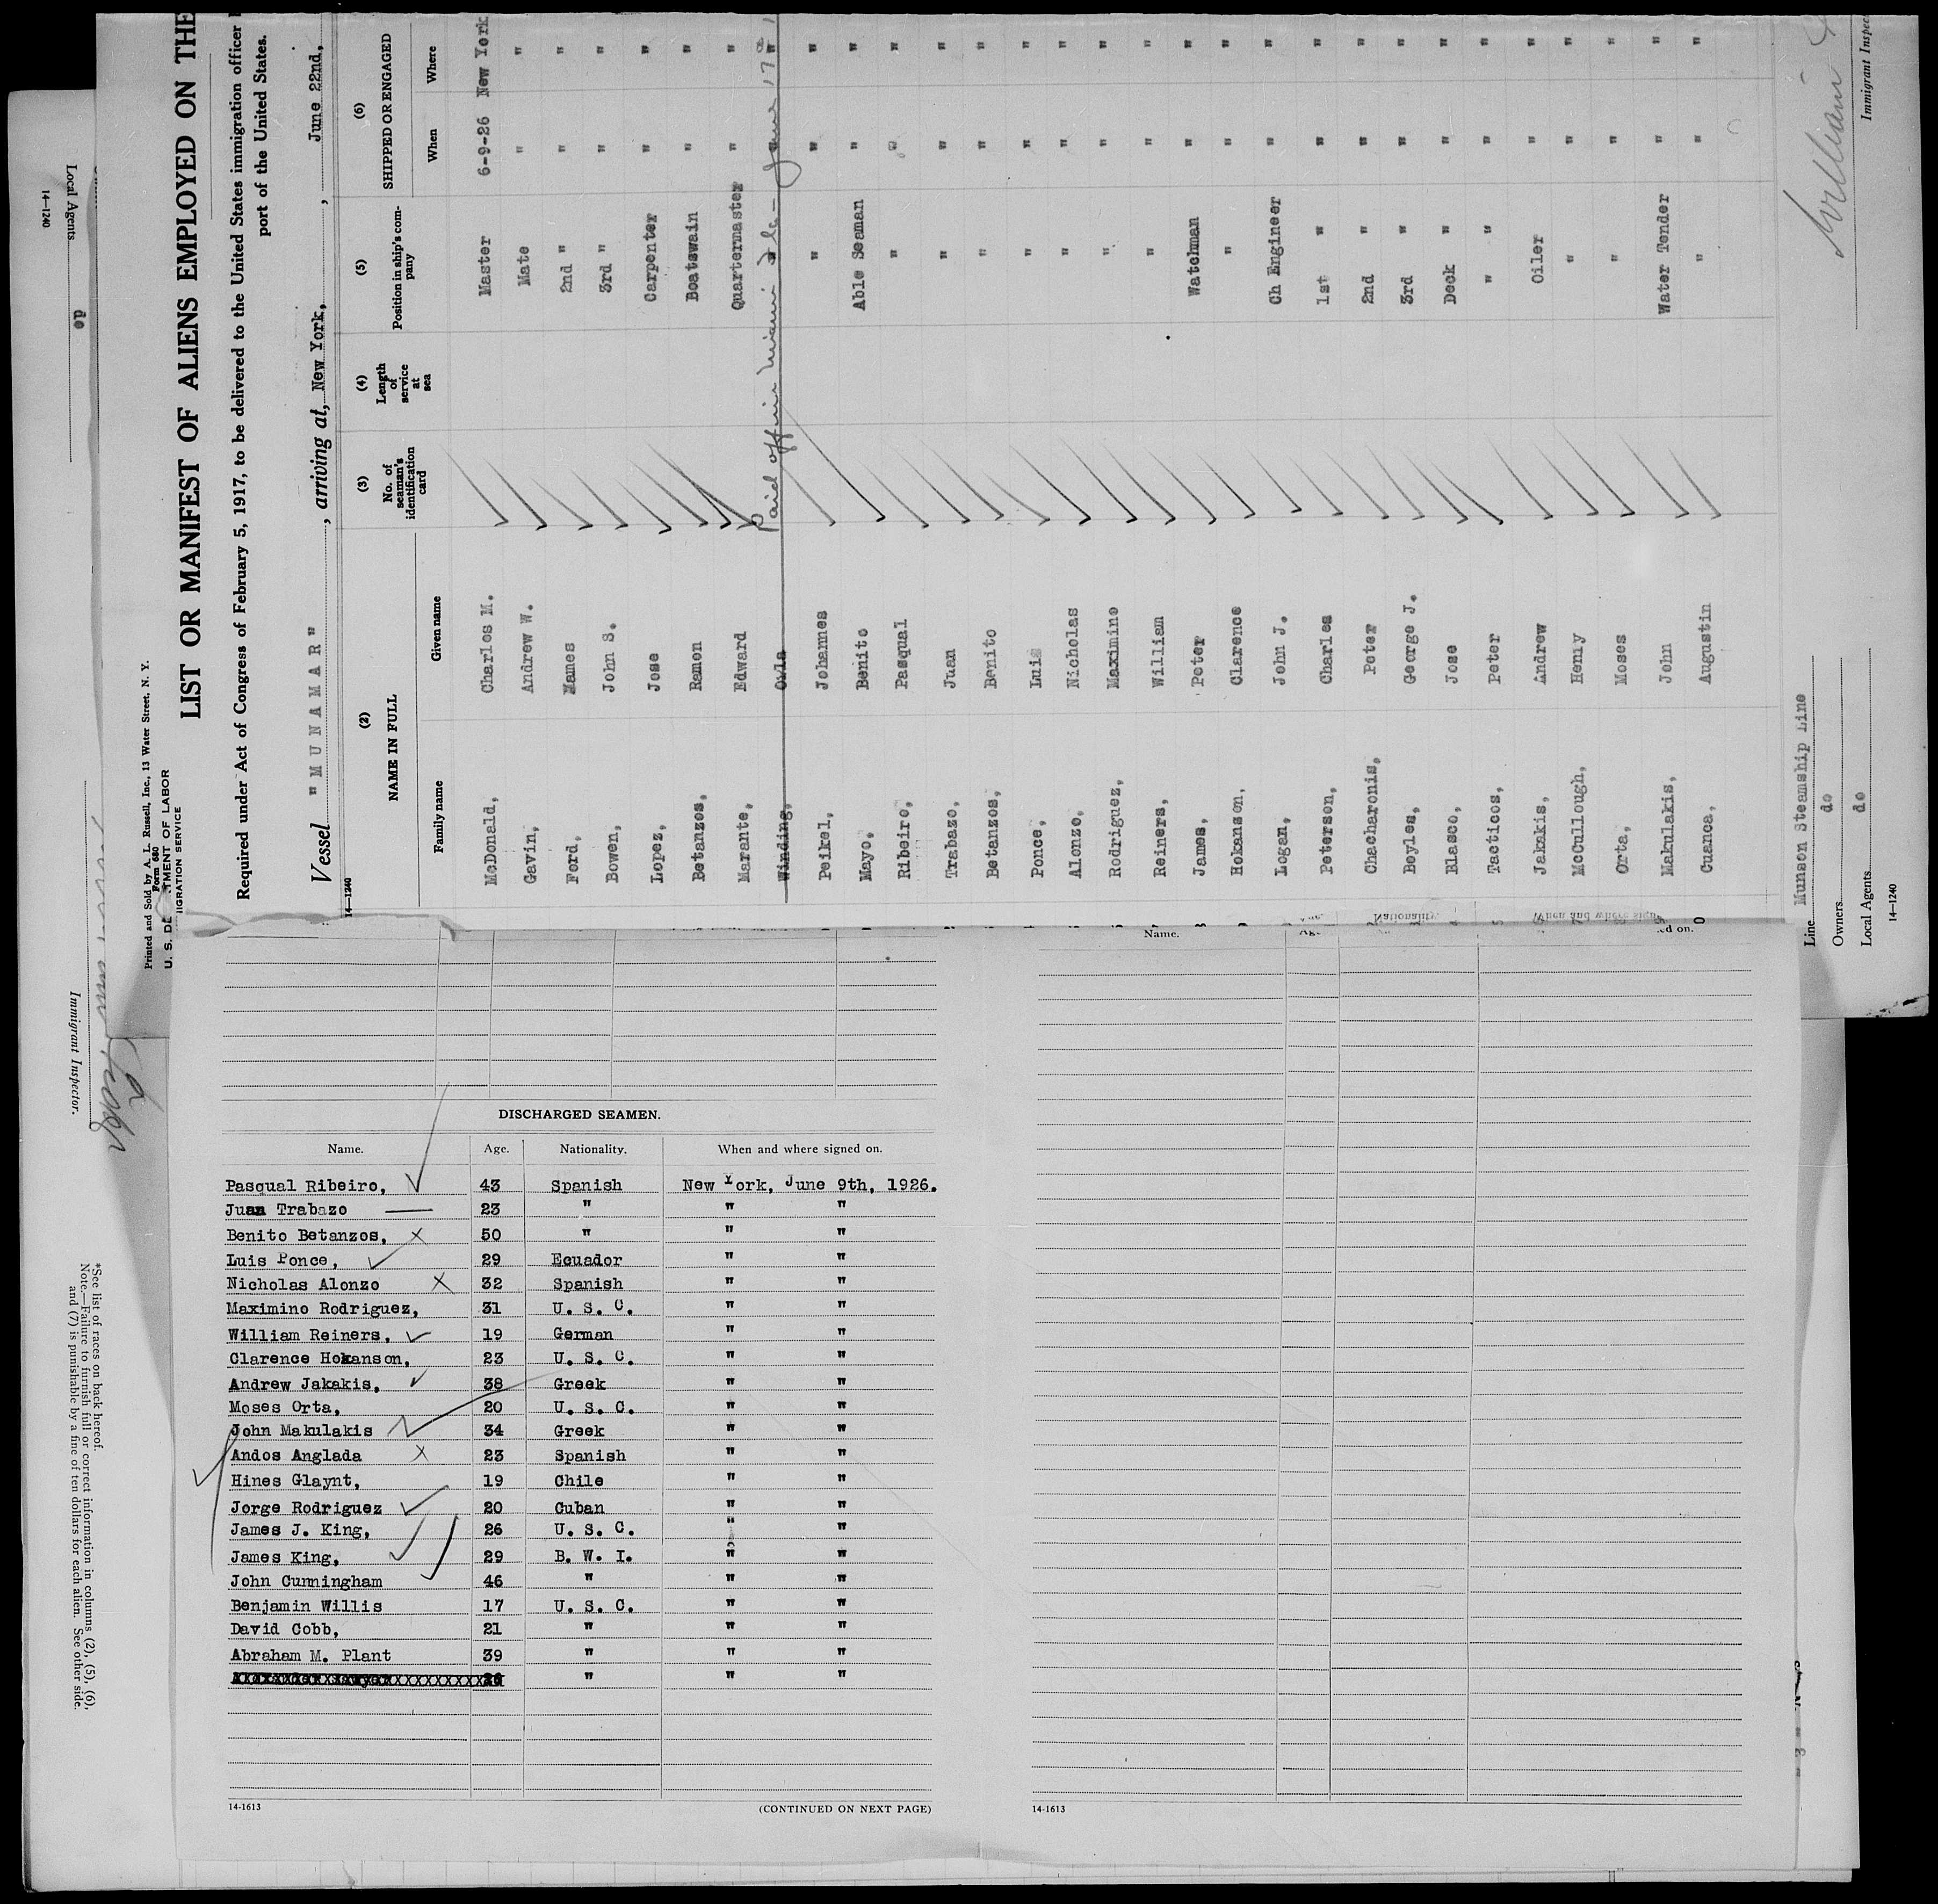 Printed and Sold by A. L. Russell, Inc., 13 Water Street, N. Y.
Form 680
U. S. DE TMENT OF LABOR
IIGRATION SERVICE
LIST OR MANIFEST OF ALIENS EMPLOYED ON THE
Required under Act of Congress of February 5, 1917, to be delivered to the United States immigration officer
port of the United States.
Vessel " M U N A M A R ", arriving at, New York, , June 22nd,
14—1240
(2) (3) (4) (5) (6)
NAME IN FULL No. of seaman's identification card Length of service at sea Position in ship's company SHIPPED OR ENGAGED
Family name Given name When Where
McDonald, Charles M. Master 6-9-26 New York
Gavin, Andrew W. Mate " "
Ford, Mames 2nd " " "
Bowen, John S. 3rd " " "
Lopez, Jose Carpenter " "
Betanzos, Ramon Boatswain " "
Marante, Edward Quartermaster " "
Winding, Ovla Paid off in Miami Fla - June 17 " "
Peikel, Johannes " " "
Mayo, Benito Able Seaman " "
Ribeiro, Pasqual " " "
Trabazo, Juan " " "
Betanzos, Benito " " "
Ponce, Luis " " "
Alonzo, Nicholas " " "
Rodriguez, Maximino " " "
Reiners, William " " "
James, Peter Watchman " "
Hokanson, Clarence " " "
Logan, John J. Ch Engineer " "
Peterson, Charles 1st " " "
Chacharonis, Peter 2nd " " "
Boyles, George J. 3rd " " "
Blasco, Jose Deck " " "
Tacticos, Peter " " " "
Jakakis, Andrew Oiler " "
McCullough, Henry " " "
Orta, Moses " " "
Makulakis, John Water Tender " "
Cuanca, Augustin " " "
Line Munson Steamship Line
Owners do
Local Agents do
14—1240
William
Immigrant Inspec
Local Agents do
14—1240
Immigrant Inspector.
*See list of races on back hereof.
Note.—Failure to furnish full or correct information in columns (2), (5), (6),
and (7) is punishable by a fine of ten dollars for each alien. See other side.
Nationality. When and where sign
Name. ed on.
DISCHARGED SEAMEN.
Name. Age. Nationality. When and where signed on.
Pasqual Ribeiro, 43 Spanish New York, June 9th, 1926.
Juan Trabazo 23 " " "
Benito Betanzos, 50 " " "
Luis Ponce, 29 Ecuador " "
Nicholas Alonzo 32 Spanish " "
Maximino Rodriguez, 31 U. S. C. " "
William Reiners, 19 German " "
Clarence Hokanson, 23 U. S. C. " "
Andrew Jakakis, 38 Greek " "
Moses Orta, 20 U. S. C. " "
John Makulakis 34 Greek " "
Andos Anglada 23 Spanish " "
Hines Glaynt, 19 Chile " "
Jorge Rodriguez 20 Cuban " "
James J. King, 26 U. S. C. " "
James King, 29 B. W. I. " "
John Cunningham 46 " " "
Benjamin Willis 17 U. S. C. " "
David Cobb, 21 " " "
Abraham M. Plant 39 " " "
" " "
14-1613 (CONTINUED ON NEXT PAGE)
14-1613